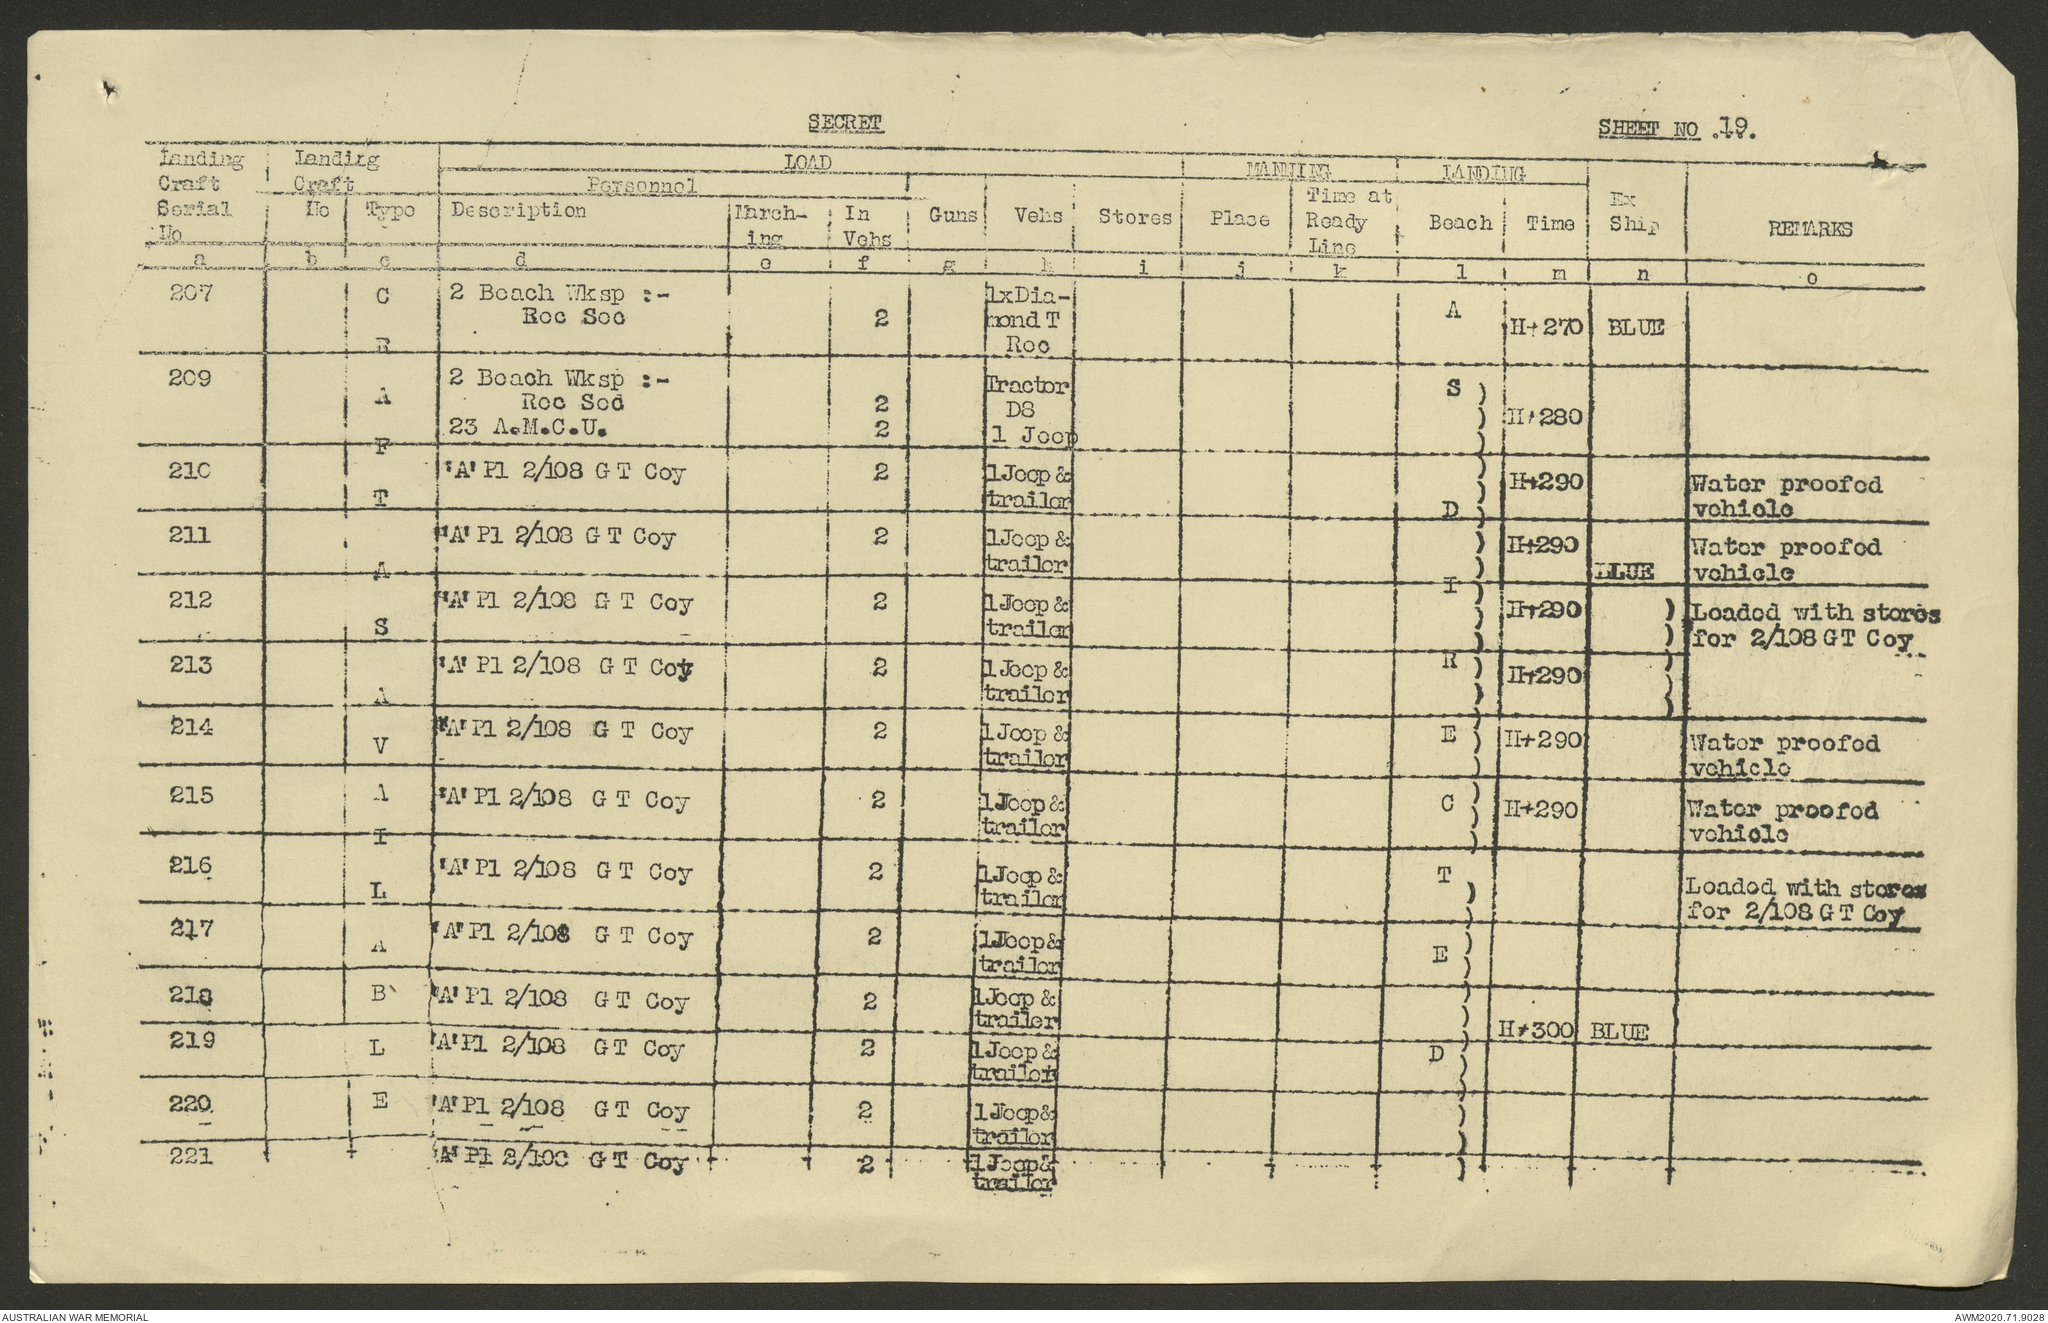 SECRET
SHEET NO .19.
Landing Craft Serial No
Landing Craft
No
Type
LOAD
Personnel
Description
March-ing
In Vehs
Guns
Vehs
Stores
MANNING
Place
Time at Ready Line
LANDING
Beach
Time
Ex Ship
REMARKS
a b c d e f g h i j k l m n o
C R A F T A S A V A I L A B L E
A S D I R E C T E D
207 2 Beach Wksp :- 1xDia-
Rec Sec 2 mond T H+270 BLUE
Rec
209 2 Beach Wksp :- Tractor
Rec Sec 2 D8 H+280
23 A.M.C.U. 2 1 Jeep
210 'A' Pl 2/108 G T Coy 2 1 Jeep & H+290 Water proofed
trailer vehicle
211 'A' Pl 2/108 G T Coy 2 1 Jeep & H+290 Water proofed
trailer BLUE vehicle
212 'A' Pl 2/108 G T Coy 2 1 Jeep & H+290 ) Loaded with stores
trailer ) for 2/108 GT Coy
213 'A' Pl 2/108 G T Coy 2 1 Jeep & H+290 )
trailer )
214 'A' Pl 2/108 G T Coy 2 1 Jeep & H+290 Water proofed
trailer vehicle
215 'A' Pl 2/108 G T Coy 2 1 Jeep & H+290 Water proofed
trailer vehicle
216 'A' Pl 2/108 G T Coy 2 1 Jeep & Loaded with stores
trailer for 2/108 G T Coy
217 'A' Pl 2/108 G T Coy 2 1 Jeep &
trailer
218 'A' Pl 2/108 G T Coy 2 1 Jeep &
trailer H+300 BLUE
219 'A' Pl 2/108 G T Coy 2 1 Jeep &
trailer
220 'A' Pl 2/108 G T Coy 2 1 Jeep &
trailer
221 'A' Pl 2/108 G T Coy 2 1 Jeep &
trailer
AUSTRALIAN WAR MEMORIAL
AWM2020.71.9028